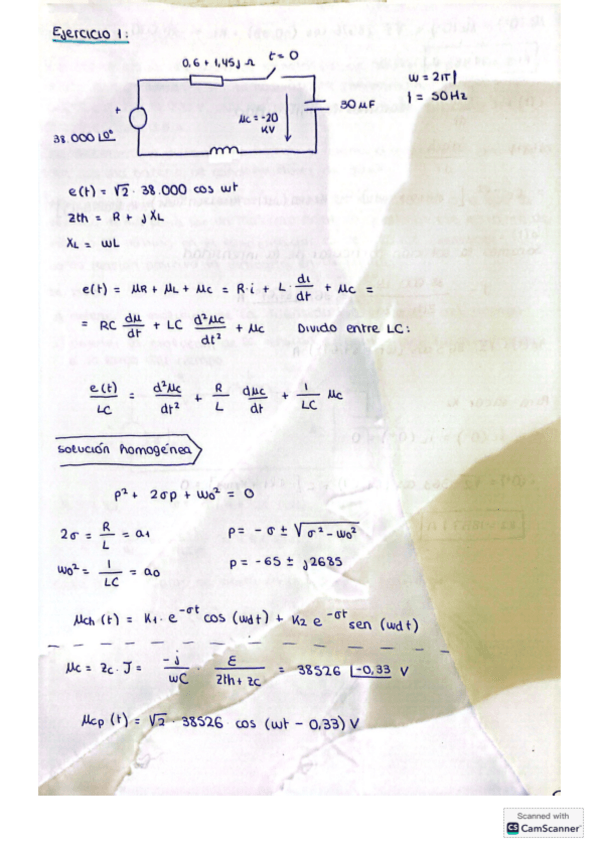 Ejercicio 1:
0,6 + 1,45j Ω
t = 0
w = 2πf
f = 50Hz
+
30 μF
μc = -20
KV
38.000 |0°
e(t) = √2 · 38.000 cos wt
Zth = R + j XL
XL = wL
e(t) = μR + μL + μc = R·i + L· di/dt + μc =
= RC dμ/dt + LC d²μc/dt² + μc   Divido entre LC:
e(t)/LC = d²μc/dt² + R/L dμc/dt + 1/LC μc
solución homogénea
p² + 2σp + wo² = 0
2σ = R/L = a1   p = -σ ± √σ² - wo²
wo² = 1/LC = ao   p = -65 ± j2685
μch (t) = K1 · e^-σt cos (wdt) + K2 e^-σt sen (wdt)
μc = Zc · J = -j/wC · E/Zth + Zc = 38526 |-0,33 V
μcp (t) = √2 · 38526 cos (wt - 0,33) V
Scanned with
CS CamScanner